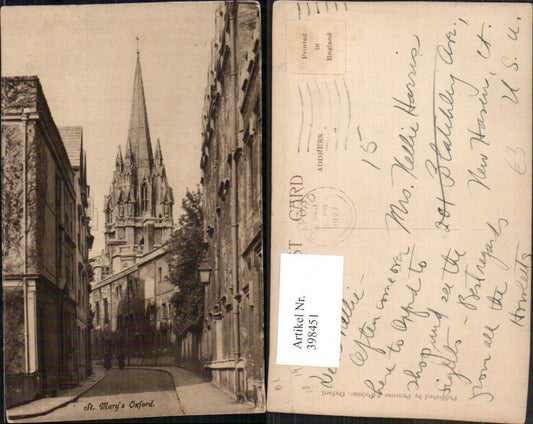 St. Mary's Oxford.
Printed
in
England
POST CARD
ADDRESS
15
Mrs. Nellie Harris
204 Blatchley Ave.,
New Haven, Ct.
U. S. A.
63
Dear Nellie -
Often come over
here to Oxford to
shop and see the
sights - Best regards
from all the
Howletts
Published by Penrose & Palmer, Oxford.
Artikel Nr.
398451